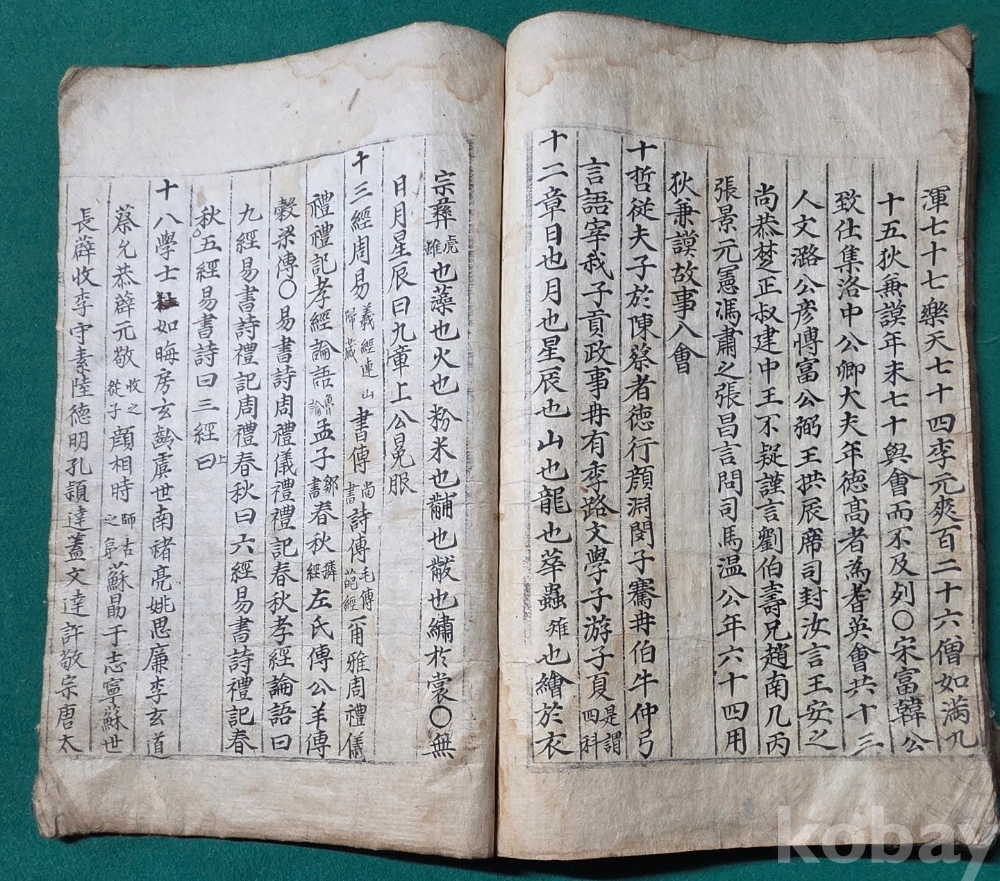 渾七十七樂天七十四李元爽百二十六僧如滿九
十五狄兼謨年未七十與會而不及列〇宋富韓公
致仕集洛中公卿大夫年德高者為耆英會共十三
人文潞公彦博富公弼王拱辰席司封汝言王安之
尚恭楚正叔建中王不疑謹言劉伯壽兄趙南几丙
張景元憲馮肅之張昌言問司馬溫公年六十四用
狄兼謨故事入會
十哲從夫子於陳蔡者德行顔淵閔子騫冉伯牛仲弓
言語宰我子貢政事冉有季路文學子游子夏是謂四科
十二章日也月也星辰也山也龍也華蟲雉也繪於衣
宗彛虎雖也藻也火也粉米也黼也黻也繡於裳〇無
日月星辰曰九章上公冕服
十三經周易羲經連山歸藏書傳尚書詩傳毛傳葩經爾雅周禮儀
禮禮記孝經論語魯論孟子鄒書春秋麟經左氏傳公羊傳
穀梁傳〇易書詩周禮儀禮禮記春秋孝經論語曰
九經易書詩禮記周禮春秋曰六經易書詩禮記春
秋五經易書詩曰三經曰上
十八學士杜如晦房玄齡虞世南褚亮姚思廉李玄道
蔡允恭薛元敬收之從子顔相時師古之弟蘇勗于志寧蘇世
長薛收李守素陸德明孔穎達蓋文達許敬宗唐太
kobay